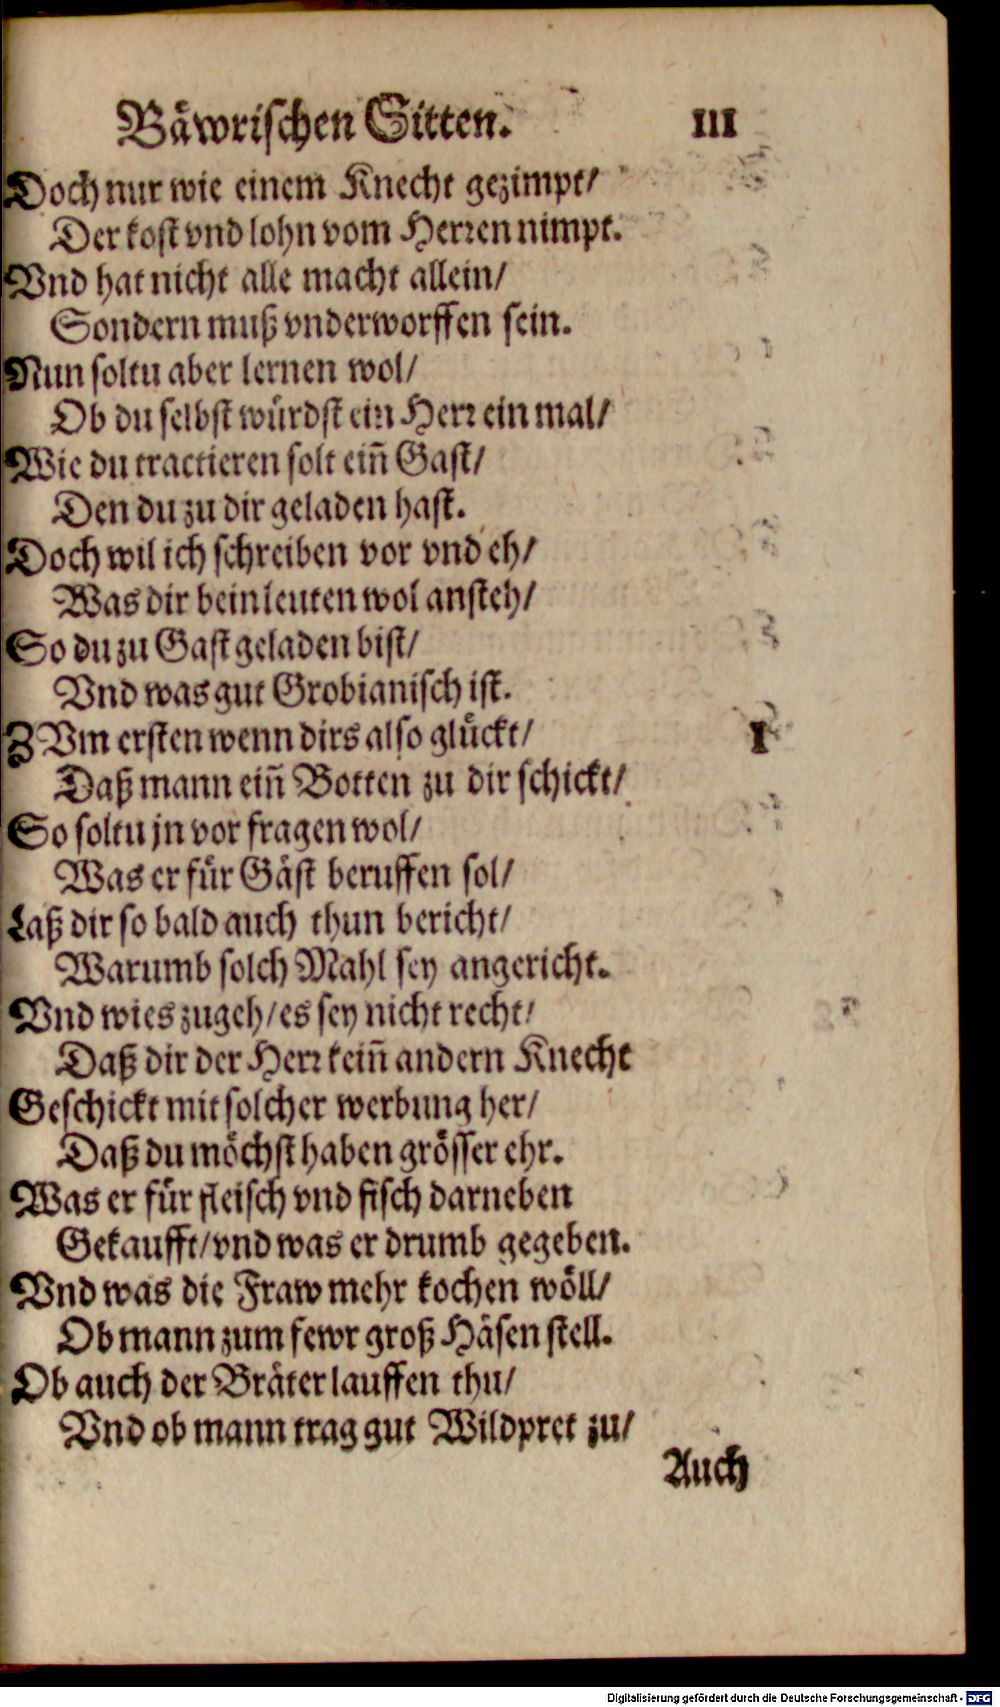 Bäwrischen Sitten. 111
Doch nur wie einem Knecht gezimpt/
Der kost vnd lohn vom Herren nimpt.
Vnd hat nicht alle macht allein/
Sondern muß vnderworffen sein.
Nun soltu aber lernen wol/
Ob du selbst würdst ein Herr ein mal/
Wie du tractieren solt eiñ Gast/
Den du zu dir geladen hast.
Doch wil ich schreiben vor vnd eh/
Was dir bein leuten wol ansteh/
So du zu Gast geladen bist/
Vnd was gut Grobianisch ist.
ZVm ersten wenn dirs also glückt/ 1
Daß mann eiñ Botten zu dir schickt/
So soltu jn vor fragen wol/
Was er für Gäst beruffen sol/
Laß dir so bald auch thun bericht/
Warumb solch Mahl sey angericht.
Vnd wies zugeh/es sey nicht recht/
Daß dir der Herr keiñ andern Knecht
Geschickt mit solcher werbung her/
Daß du möchst haben grösser ehr.
Was er für fleisch vnd fisch darneben
Gekaufft/vnd was er drumb gegeben.
Vnd was die Fraw mehr kochen wöll/
Ob mann zum fewr groß Häfen stell.
Ob auch der Bräter lauffen thu/
Vnd ob mann trag gut Wildpret zu/
Auch
Digitalisierung gefördert durch die Deutsche Forschungsgemeinschaft - DFG